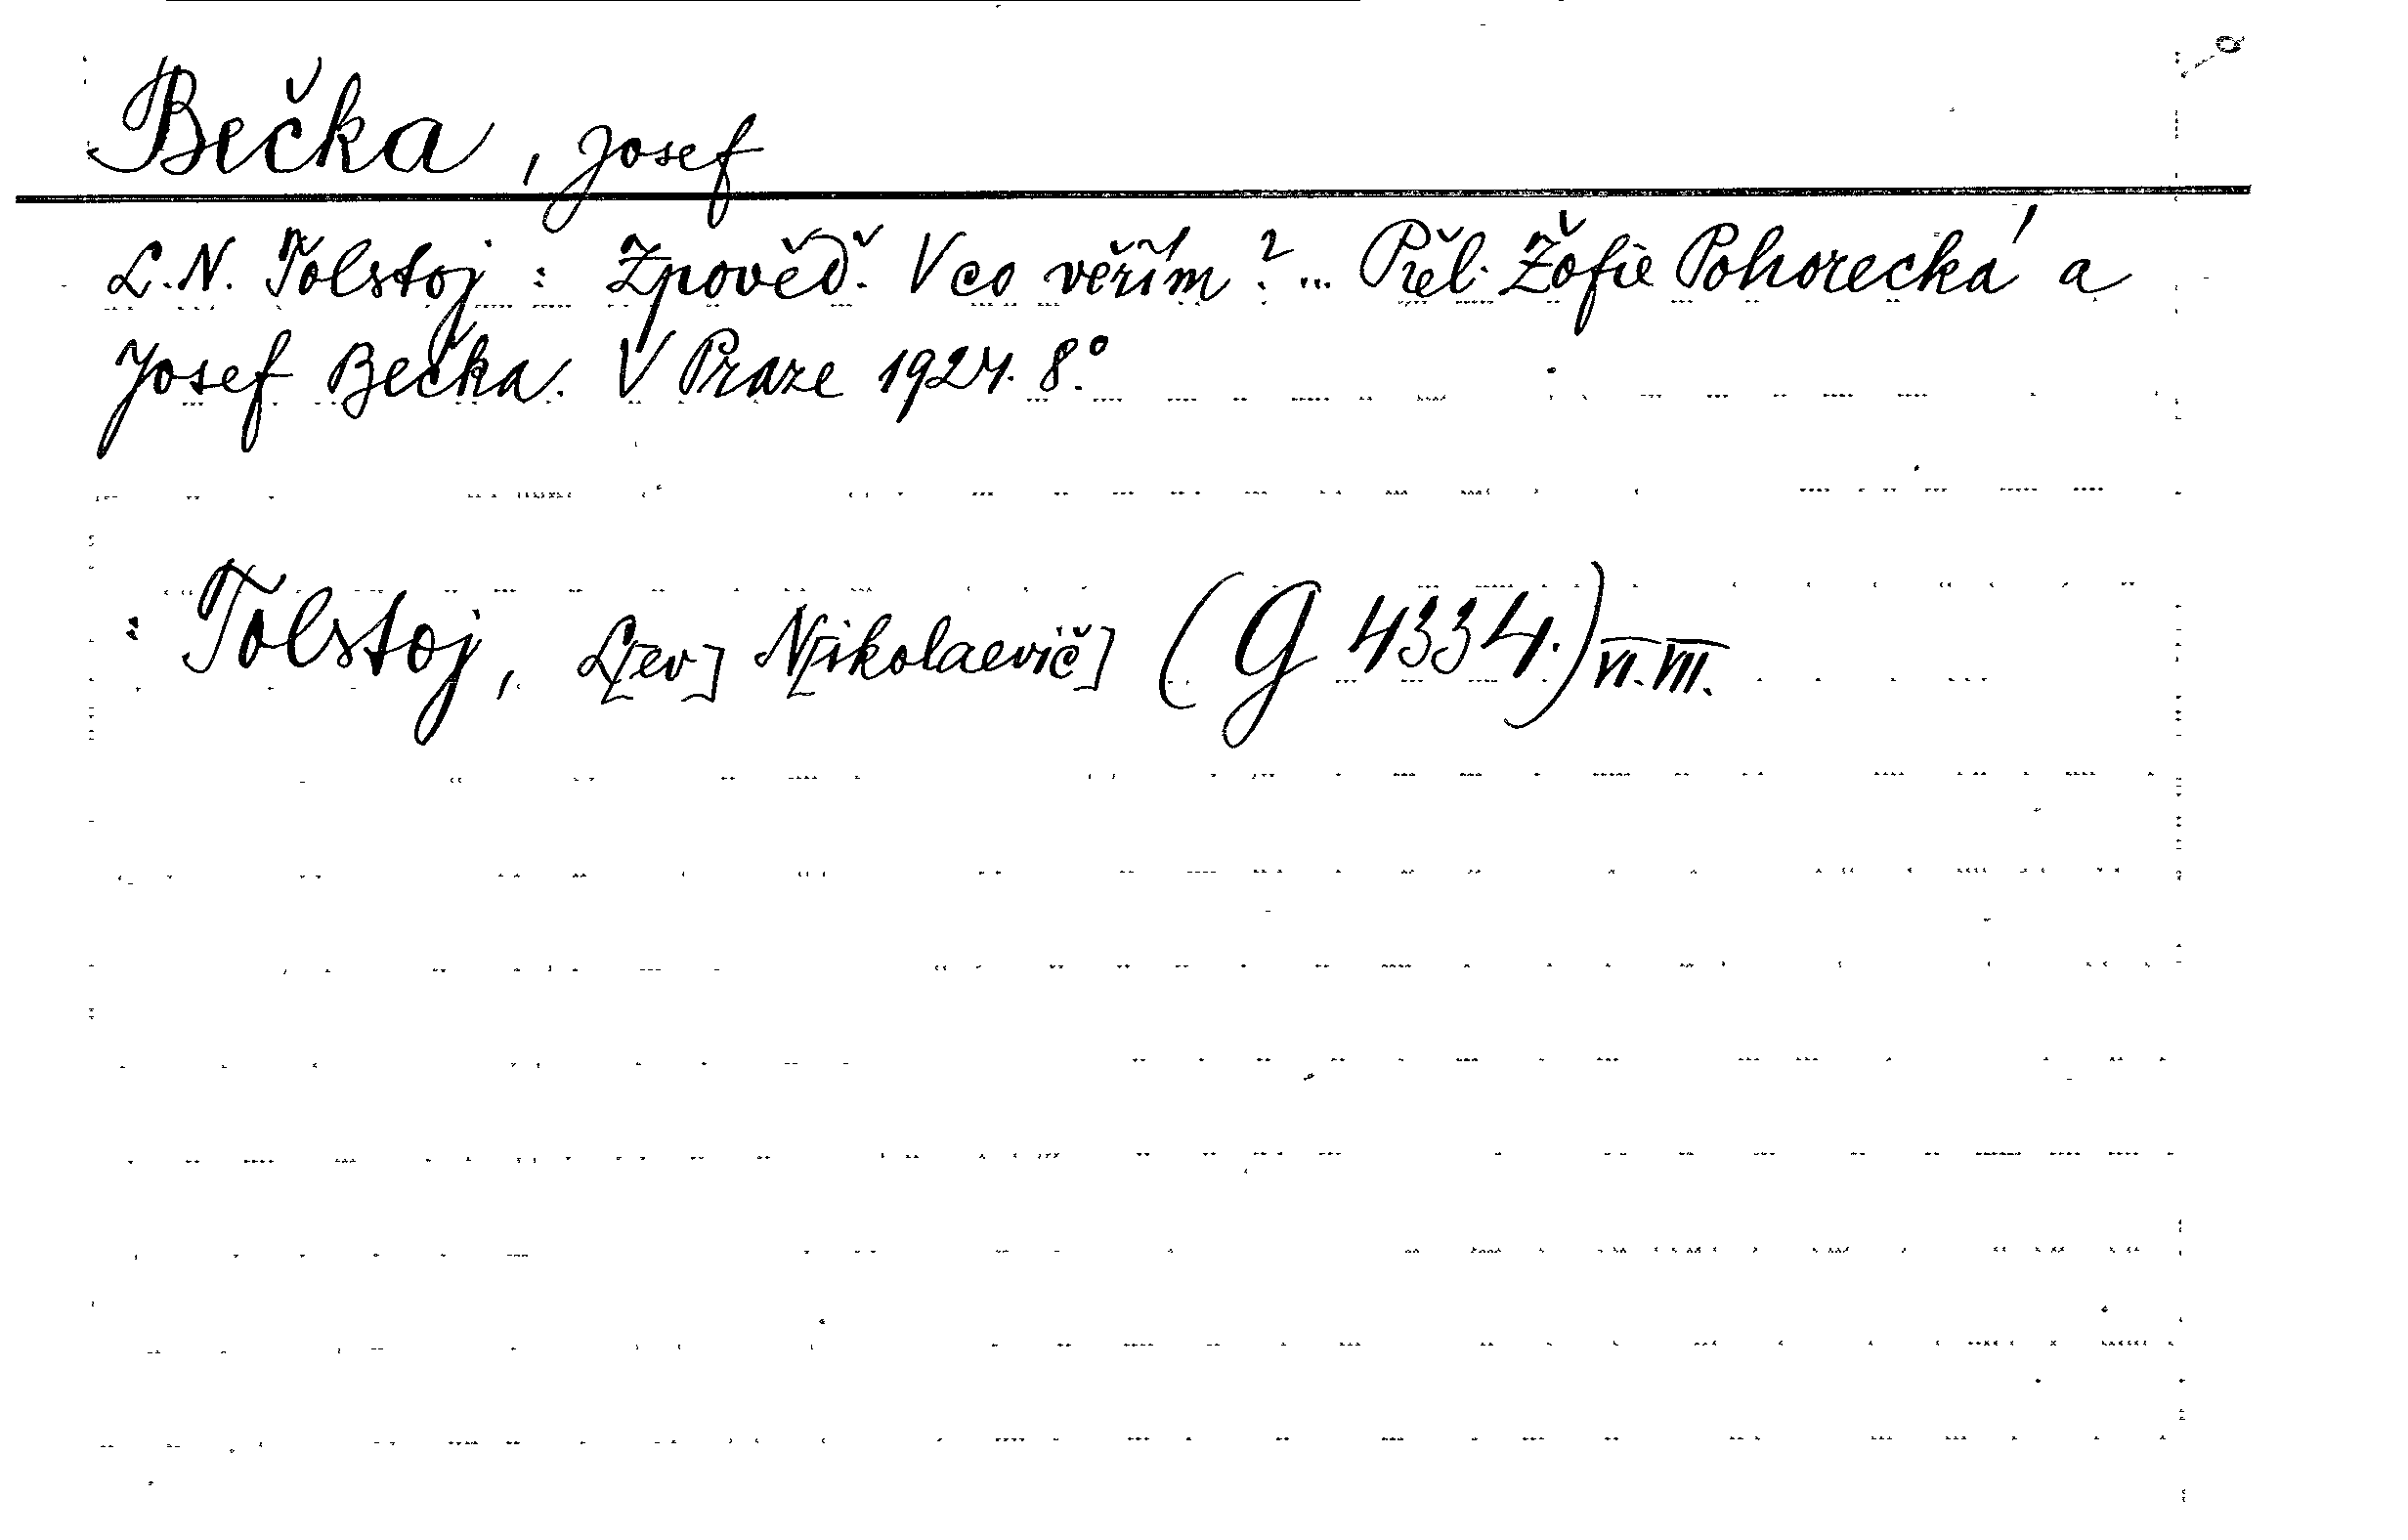 Bečka, Josef
L. N. Tolstoj : Zpověď. V co věřím?... Přel. Žofie Pohorecká a
Josef Bečka. V Praze 1924. 8.°
: Tolstoj, L[ev] N[ikolaevič] (G 4334.) VI. VII.